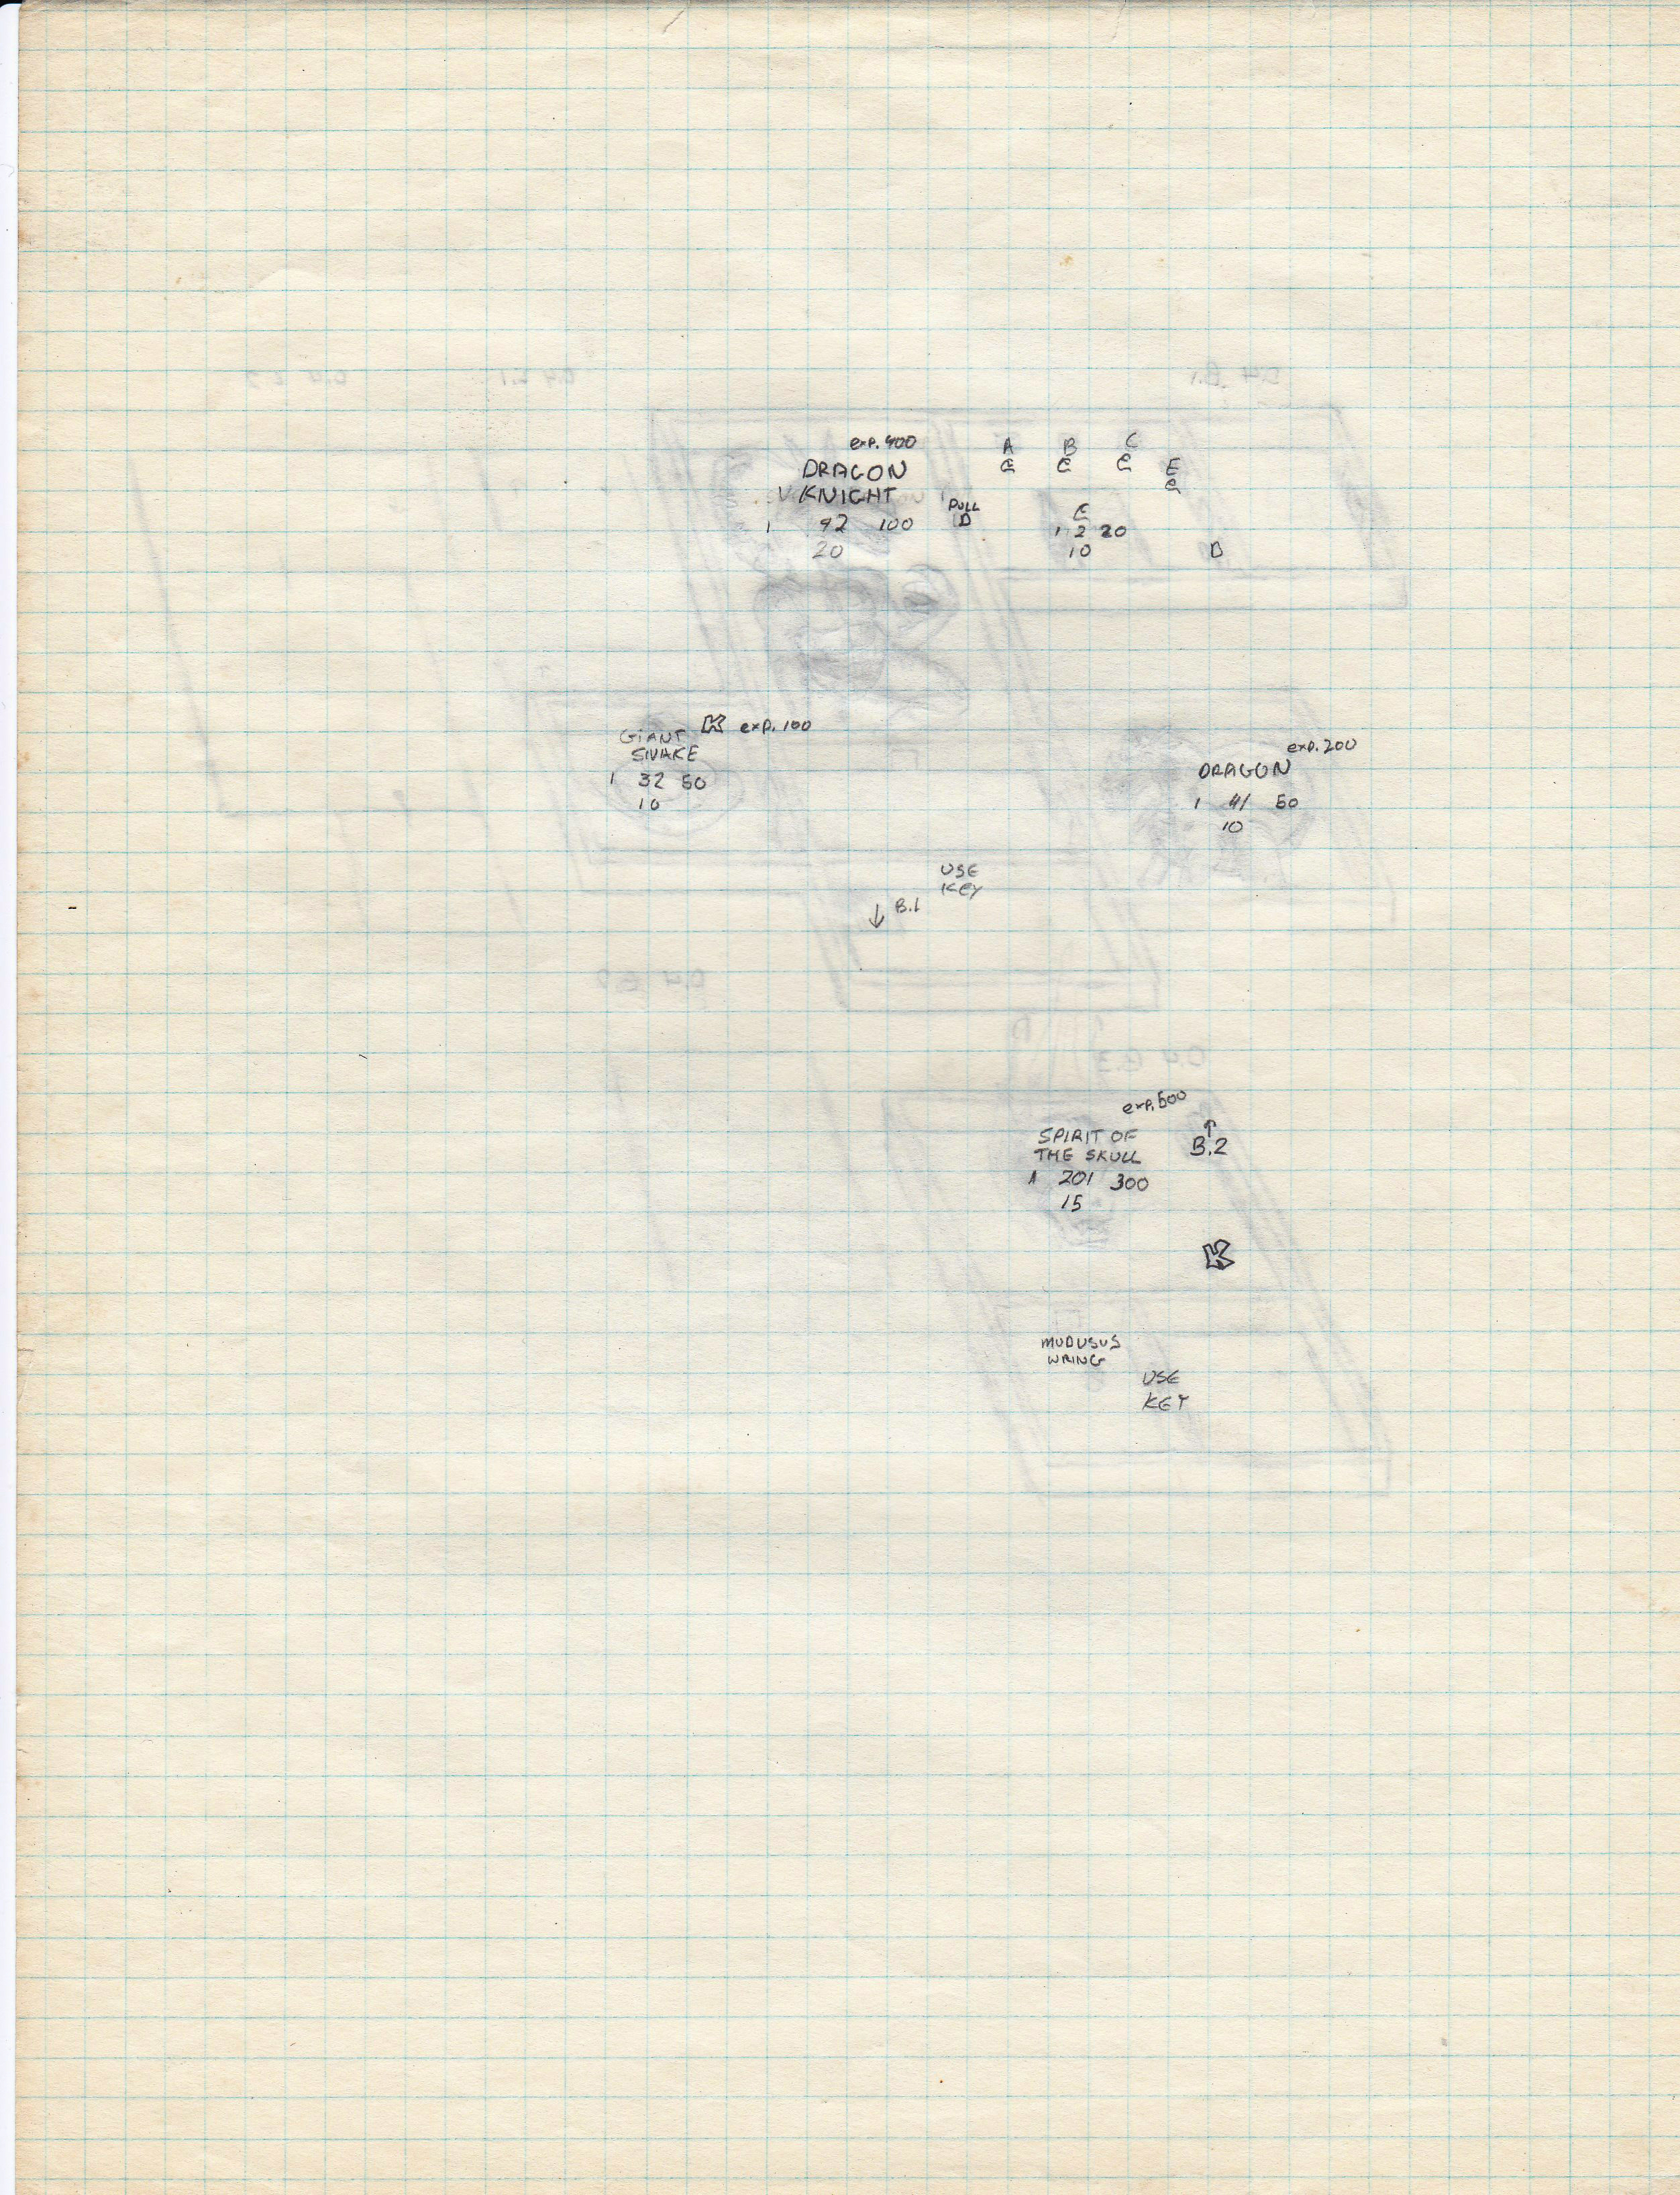 exp. 400
DRAGON
KNIGHT
1 92 100
20
PULL
D
A B C
C C C
E
e
C
1 2 20
10
D
K exp. 100
GIANT
SNAKE
1 32 50
10
exp. 200
DRAGON
1 41 50
10
USE
KEY
↓ B.1
exp. 500
SPIRIT OF
THE SKULL
1 201 300
15
↑
B.2
K
MUDUSUS
WRING
USE
KEY